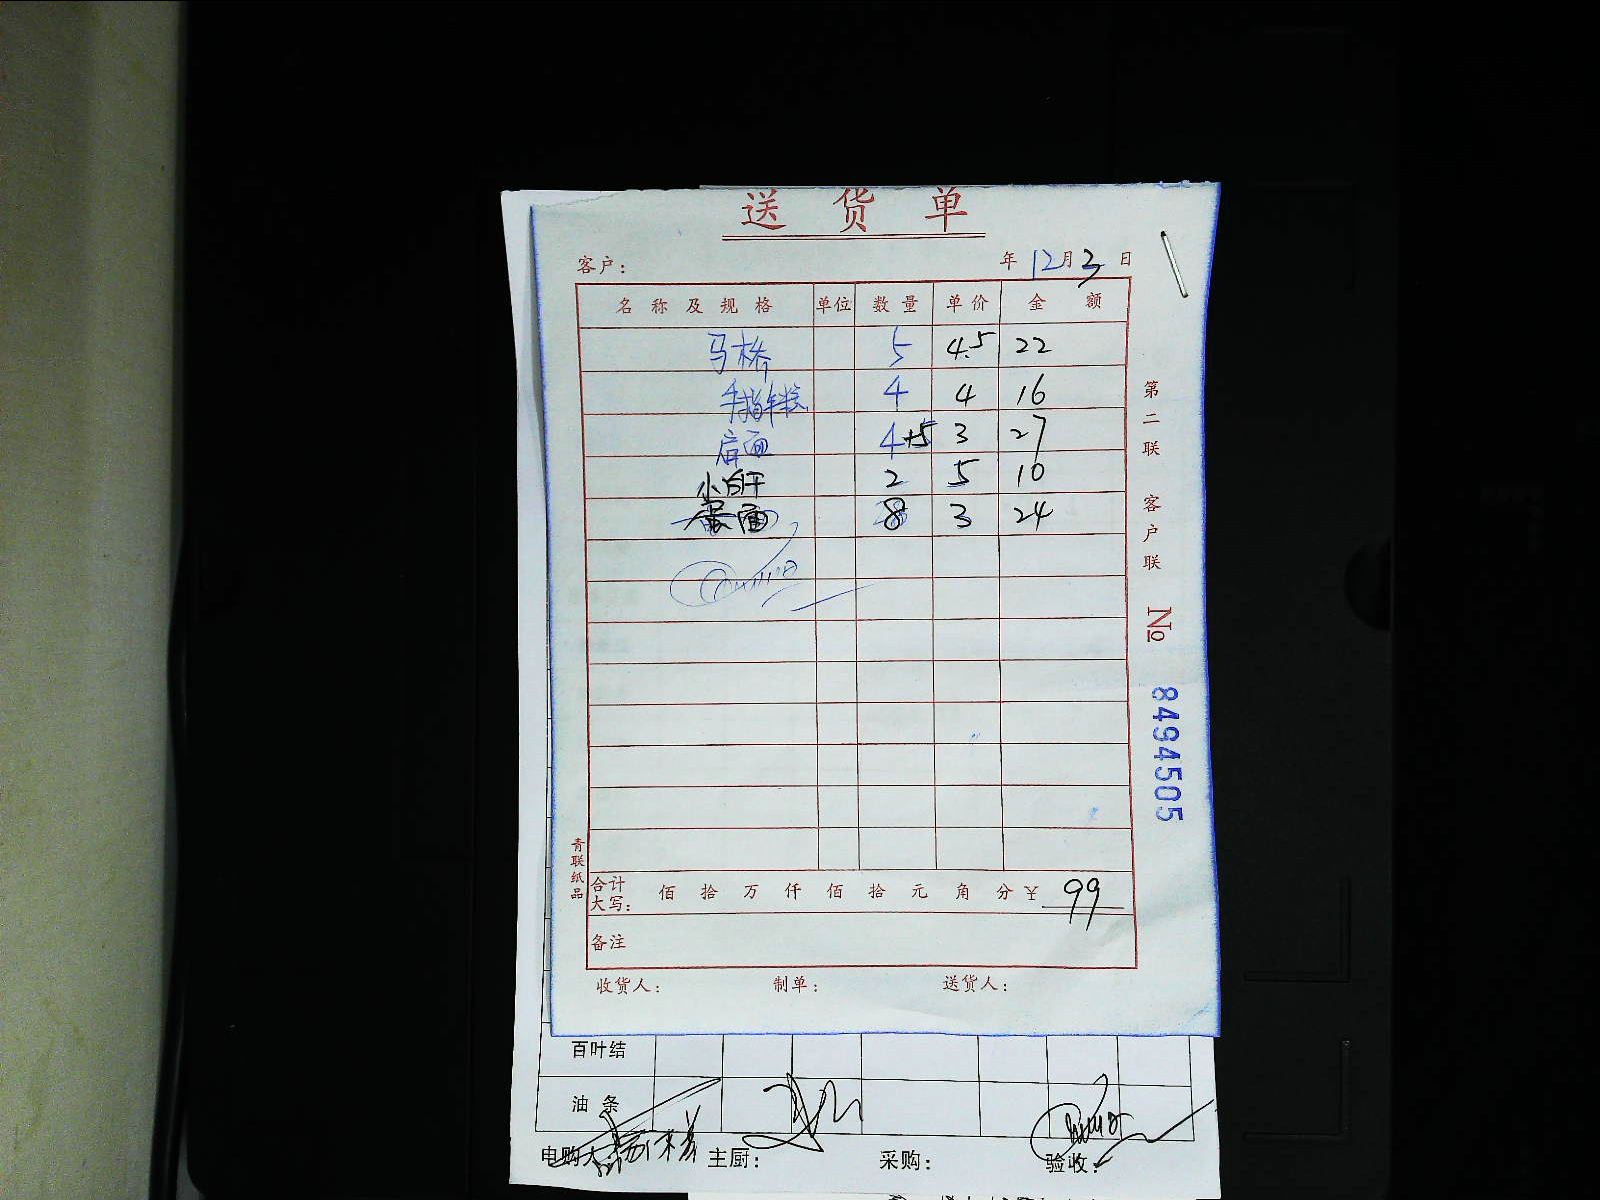 送 货 单
客户： 年 12 月 3 日
名 称 及 规 格 单位 数 量 单 价 金 额
马桥 5 4.5 22
手指年糕 4 4 16
启面 4+5 3 27
小白干 2 5 10
蛋面 8 3 24
合计大写： 佰 拾 万 仟 佰 拾 元 角 分 ¥ 99
备注
收货人： 制单： 送货人：
青联纸品
第二联 客户联 № 8494505
百叶结
油 条
申购人 主厨： 采购： 验收：